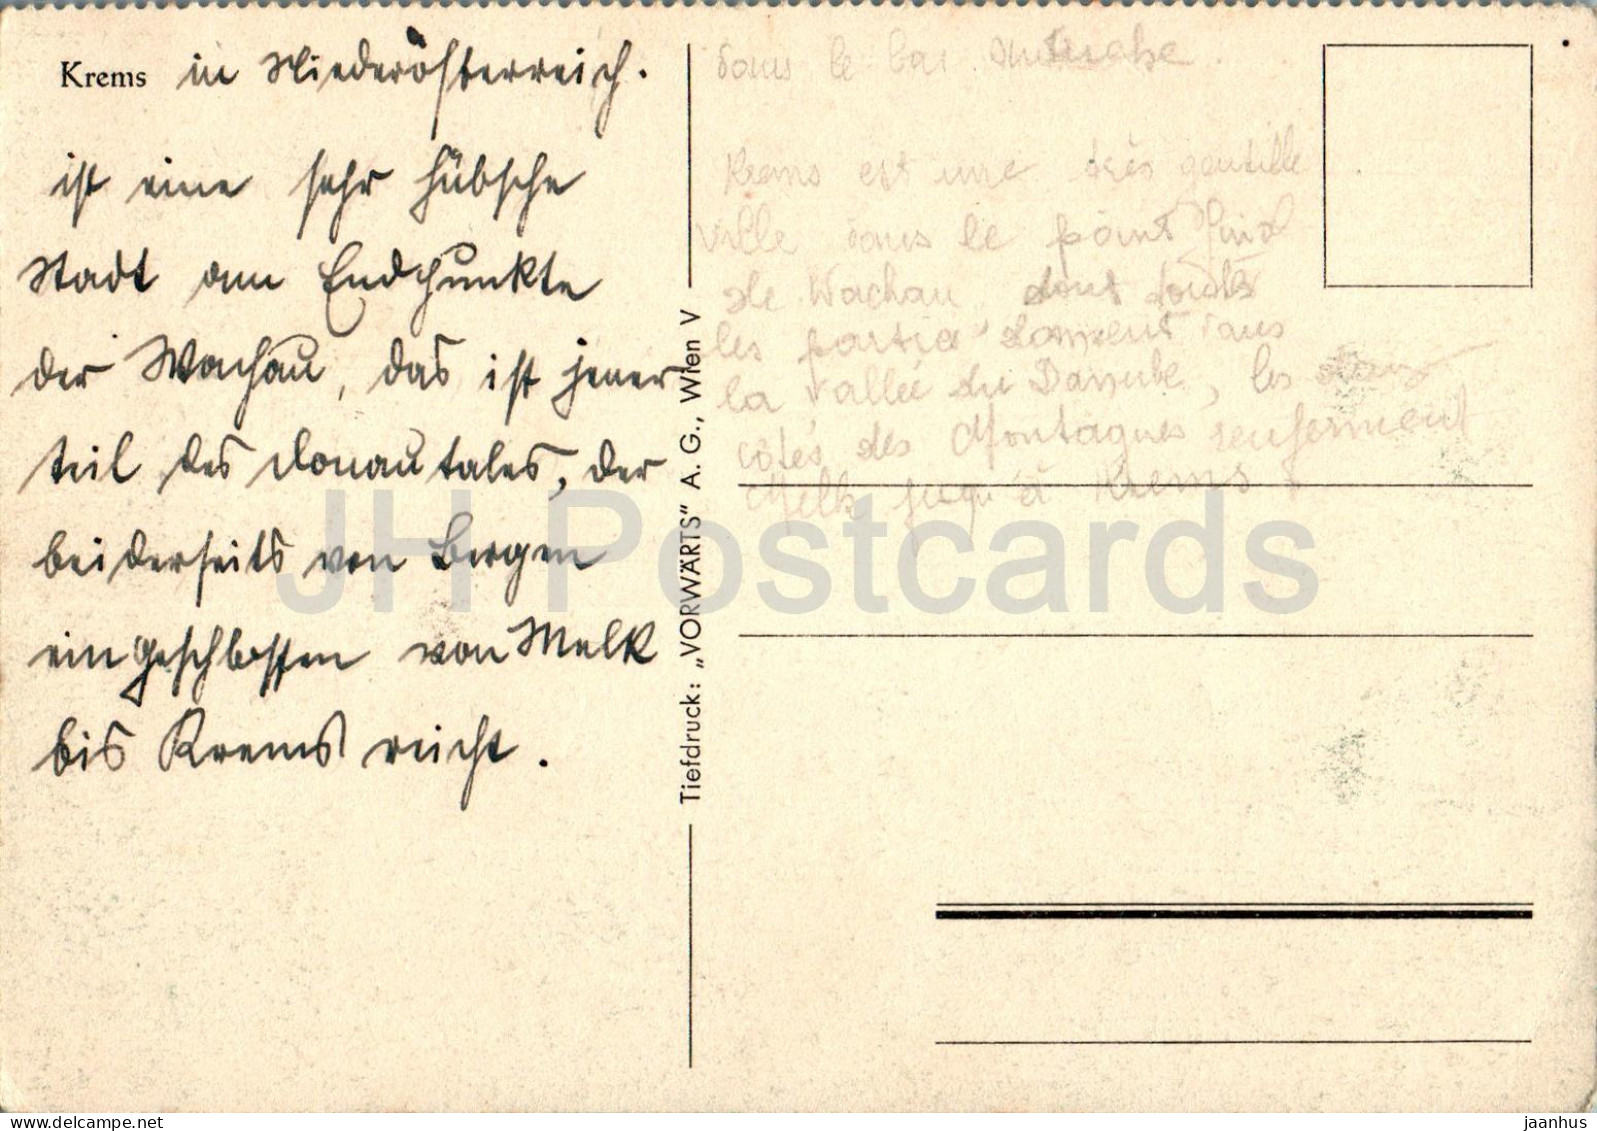 Krems in Niederösterreich.
ist eine sehr hübsche
Stadt am Endpunkte
der Wachau, das ist jener
teil des Donautales, der
beiderseits von Bergen
eingeschlossen von Melk
bis Krems reicht.
Tiefdruck: „VORWÄRTS" A. G., Wien V
dans le bas Autriche.
Krems est une très gentille
ville dans le point final
de Wachau dont toutes
les partie donnent dans
la vallée du Danube, les deux
côtés des Montagnes renferment
Melk jusqu'à Krems
JH Postcards
www.delcampe.net
jaanhus